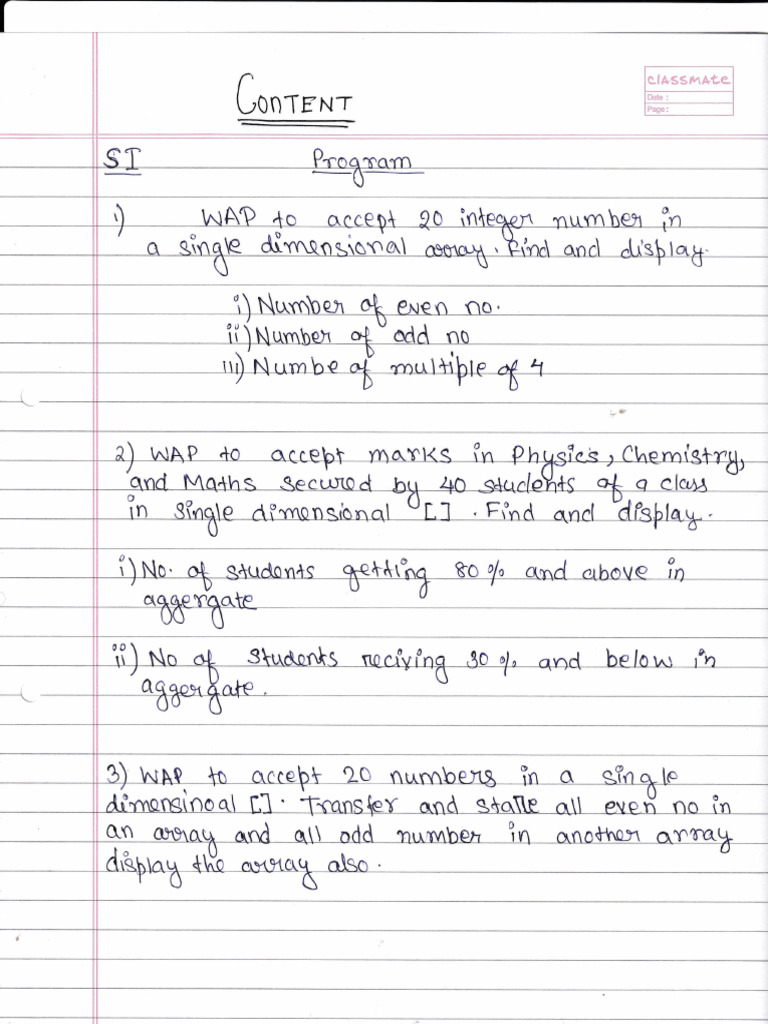 CONTENT
classmate
Date :
Page :
SI Program
1) WAP to accept 20 integer number in
a single dimensional array. Find and display.
i) Number of even no.
ii) Number of odd no
iii) Numbe of multiple of 4
2) WAP to accept marks in Physics, Chemistry,
and Maths secured by 40 students of a class
in single dimensional []. Find and display.
i) No. of students getting 80% and above in
aggergate
ii) No of students reciving 30% and below in
aggergate.
3) WAP to accept 20 numbers in a single
dimensinoal []. Transfer and all even no in
an array and all odd number in another array
display the array also.